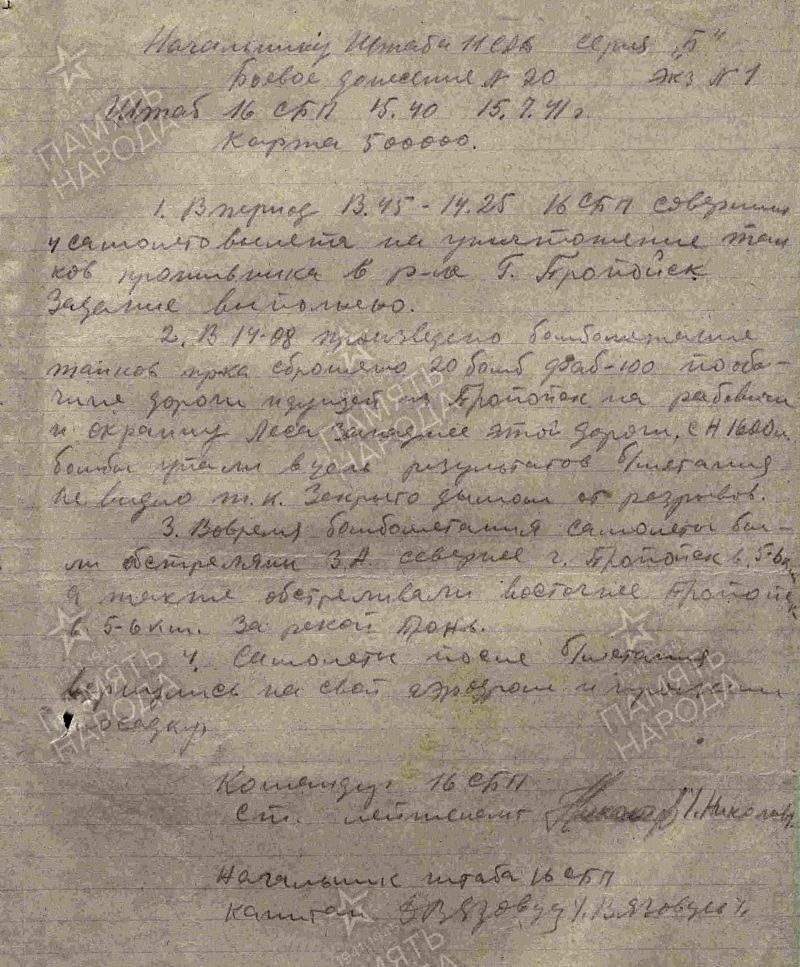 Начальнику Штаба 11 САД серия "Б"
Боевое донесение № 20 экз № 1
Штаб 16 СБП 15.40 15.7.41 г
Карта 500000.
1. В период 13.45 - 14.25 16 СБП совершил
4 самолетовылета на уничтожение тан
ков противника в р-не г. Пропойск
Задание выполнено.
2. В 14-08 произведено бомбометание
танков пр-ка сброшено 20 бомб ФАБ-100 по обо-
чине дороги идущей из Пропойск на рабовичи
и окраину леса западнее этой дороги, с Н 1600м.
бомбы упали в цель результатов б/метания
не видно т.к. закрыто дымом от разрывов.
3. Вовремя бомбометания самолеты бы-
ли обстреляны З.А. севернее г. Пропойск в 5-6 км
а также обстреливали восточнее Пропойск
в 5-6 км. за рекой Пронь.
4. Самолеты после б/метания
вернулись на свой аэродром и произвели
посадку.
Командир 16 СБП
ст. лейтенант /Николаев
Начальник штаба 16 СБП
капитан
ПАМЯТЬ
НАРОДА
ПАМЯТЬ
НАРОДА
ПАМЯТЬ
НАРОДА
ПАМЯТЬ
НАРОДА
ПАМЯТЬ
НАРОДА
ПАМЯТЬ
НАРОДА